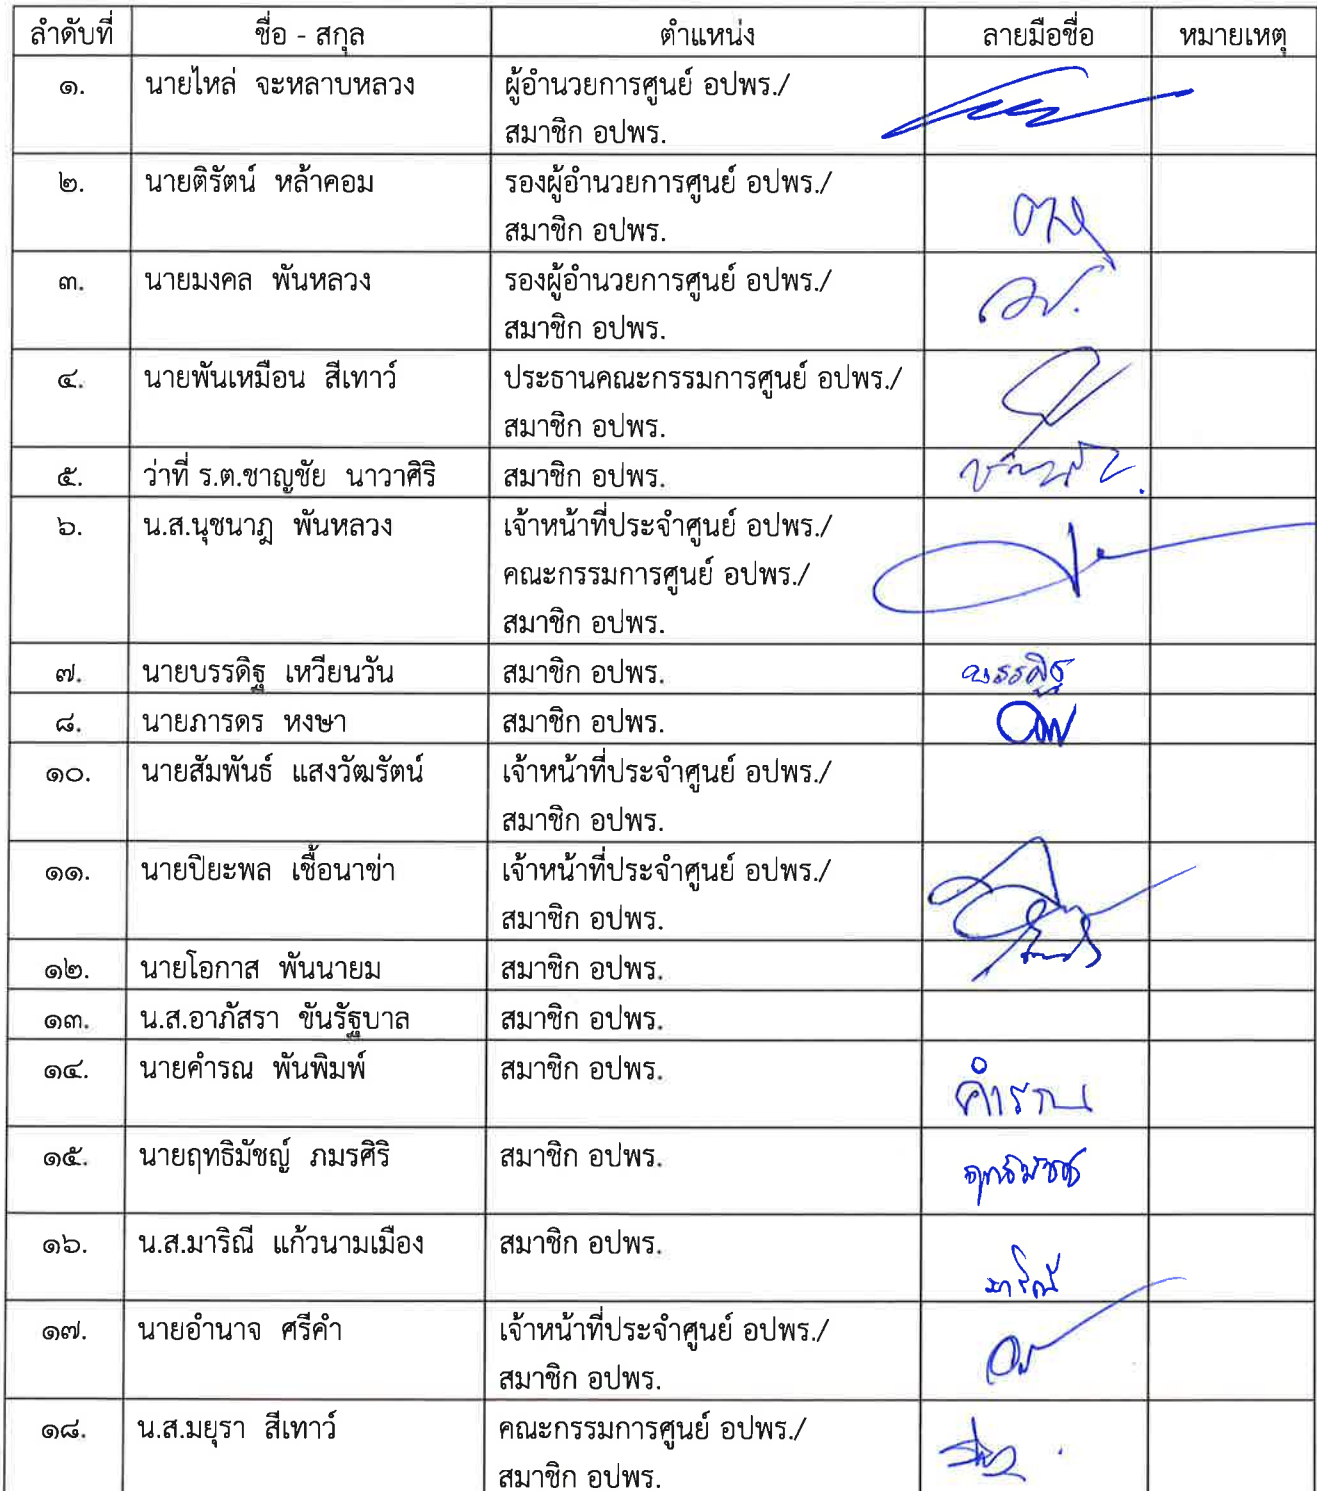 ลำดับที่ ชื่อ - สกุล ตำแหน่ง ลายมือชื่อ หมายเหตุ
๑. นายไหล่ จะหลาบหลวง ผู้อำนวยการศูนย์ อปพร./
สมาชิก อปพร.
๒. นายติรัตน์ หล้าคอม รองผู้อำนวยการศูนย์ อปพร./
สมาชิก อปพร.
๓. นายมงคล พันหลวง รองผู้อำนวยการศูนย์ อปพร./
สมาชิก อปพร.
๔. นายพันเหมือน สีเทาว์ ประธานคณะกรรมการศูนย์ อปพร./
สมาชิก อปพร.
๕. ว่าที่ ร.ต.ชาญชัย นาวาศิริ สมาชิก อปพร.
๖. น.ส.นุชนาฎ พันหลวง เจ้าหน้าที่ประจำศูนย์ อปพร./
คณะกรรมการศูนย์ อปพร./
สมาชิก อปพร.
๗. นายบรรดิฐ เหวียนวัน สมาชิก อปพร. บรรดิฐ
๘. นายภารดร หงษา สมาชิก อปพร.
๑๐. นายสัมพันธ์ แสงวัฒรัตน์ เจ้าหน้าที่ประจำศูนย์ อปพร./
สมาชิก อปพร.
๑๑. นายปิยะพล เชื้อนาข่า เจ้าหน้าที่ประจำศูนย์ อปพร./
สมาชิก อปพร.
๑๒. นายโอกาส พันนายม สมาชิก อปพร.
๑๓. น.ส.อาภัสรา ขันรัฐบาล สมาชิก อปพร.
๑๔. นายคำรณ พันพิมพ์ สมาชิก อปพร.
คำรณ
๑๕. นายฤทธิมัชญ์ ภมรศิริ สมาชิก อปพร.
๑๖. น.ส.มาริณี แก้วนามเมือง สมาชิก อปพร.
มาริณี
๑๗. นายอำนาจ ศรีคำ เจ้าหน้าที่ประจำศูนย์ อปพร./
สมาชิก อปพร.
๑๘. น.ส.มยุรา สีเทาว์ คณะกรรมการศูนย์ อปพร./
สมาชิก อปพร.